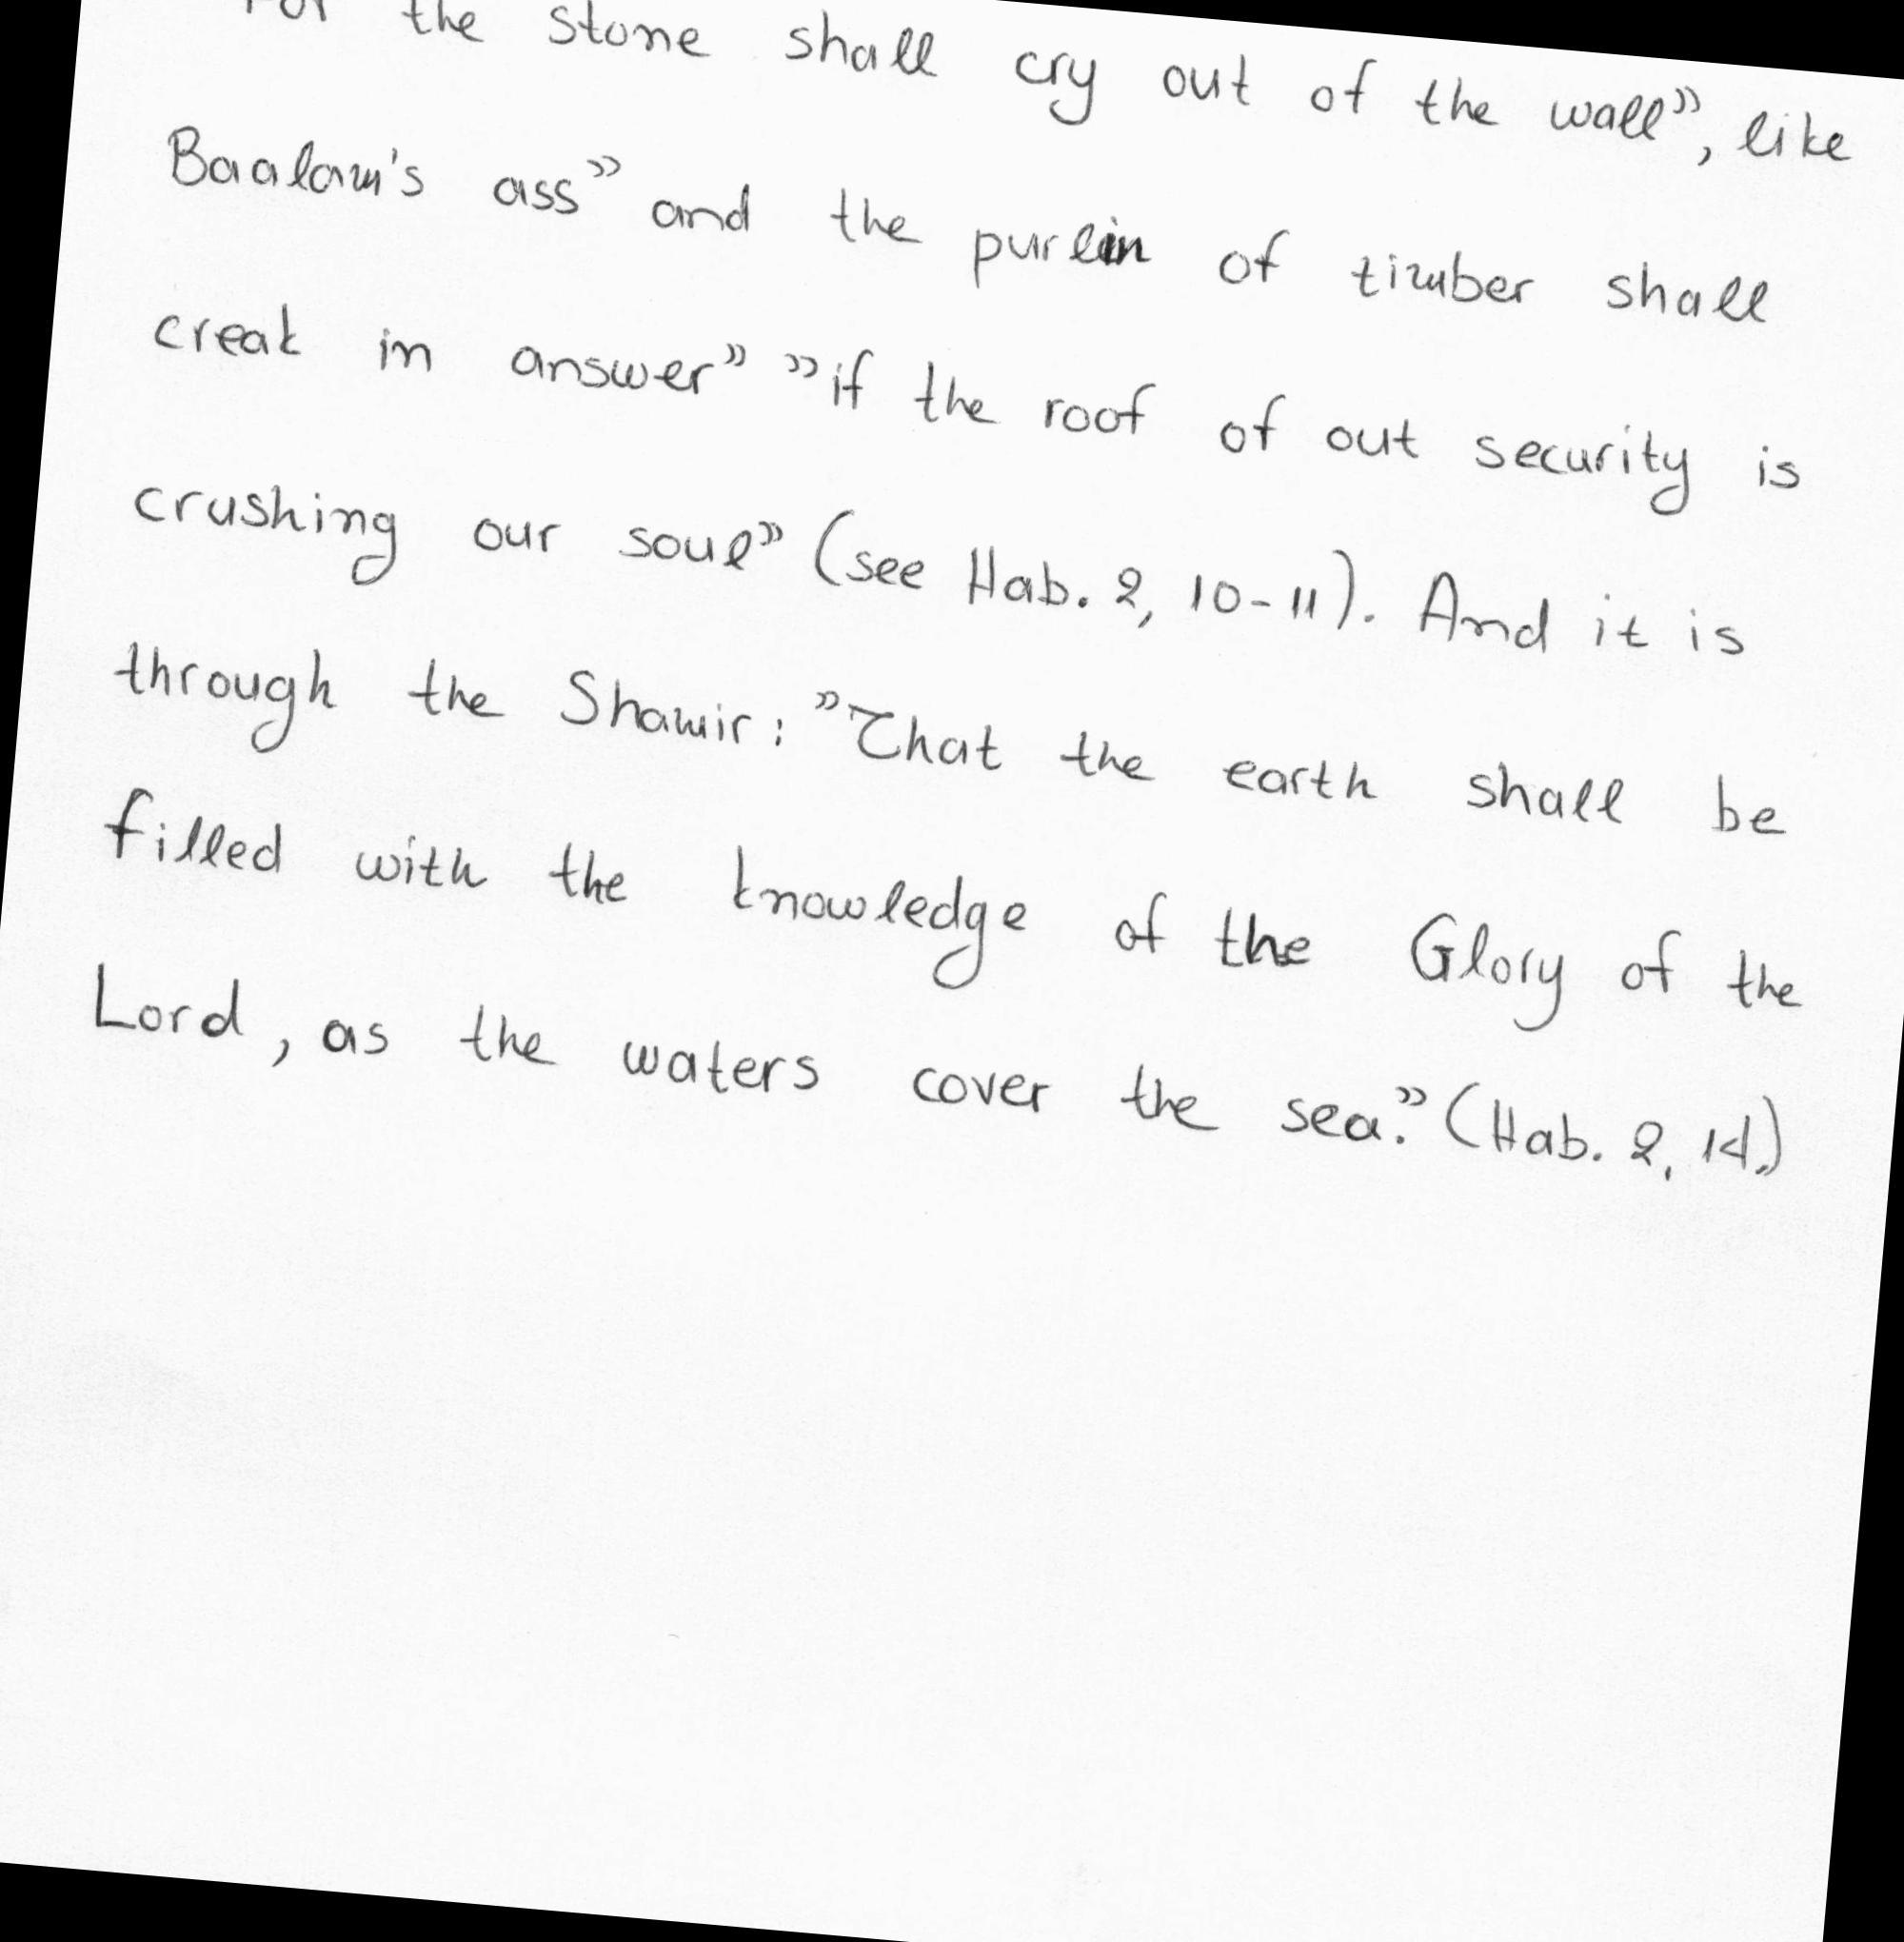 For the stone shall cry out of the wall”, like
Baalam's ass” and the purlin of timber shall
creak in answer” ”if the roof of out security is
crushing our soul” (see Hab. 2, 10-11). And it is
through the Shamir: ”That the earth shall be
filled with the knowledge of the Glory of the
Lord, as the waters cover the sea.” (Hab. 2, 14.)